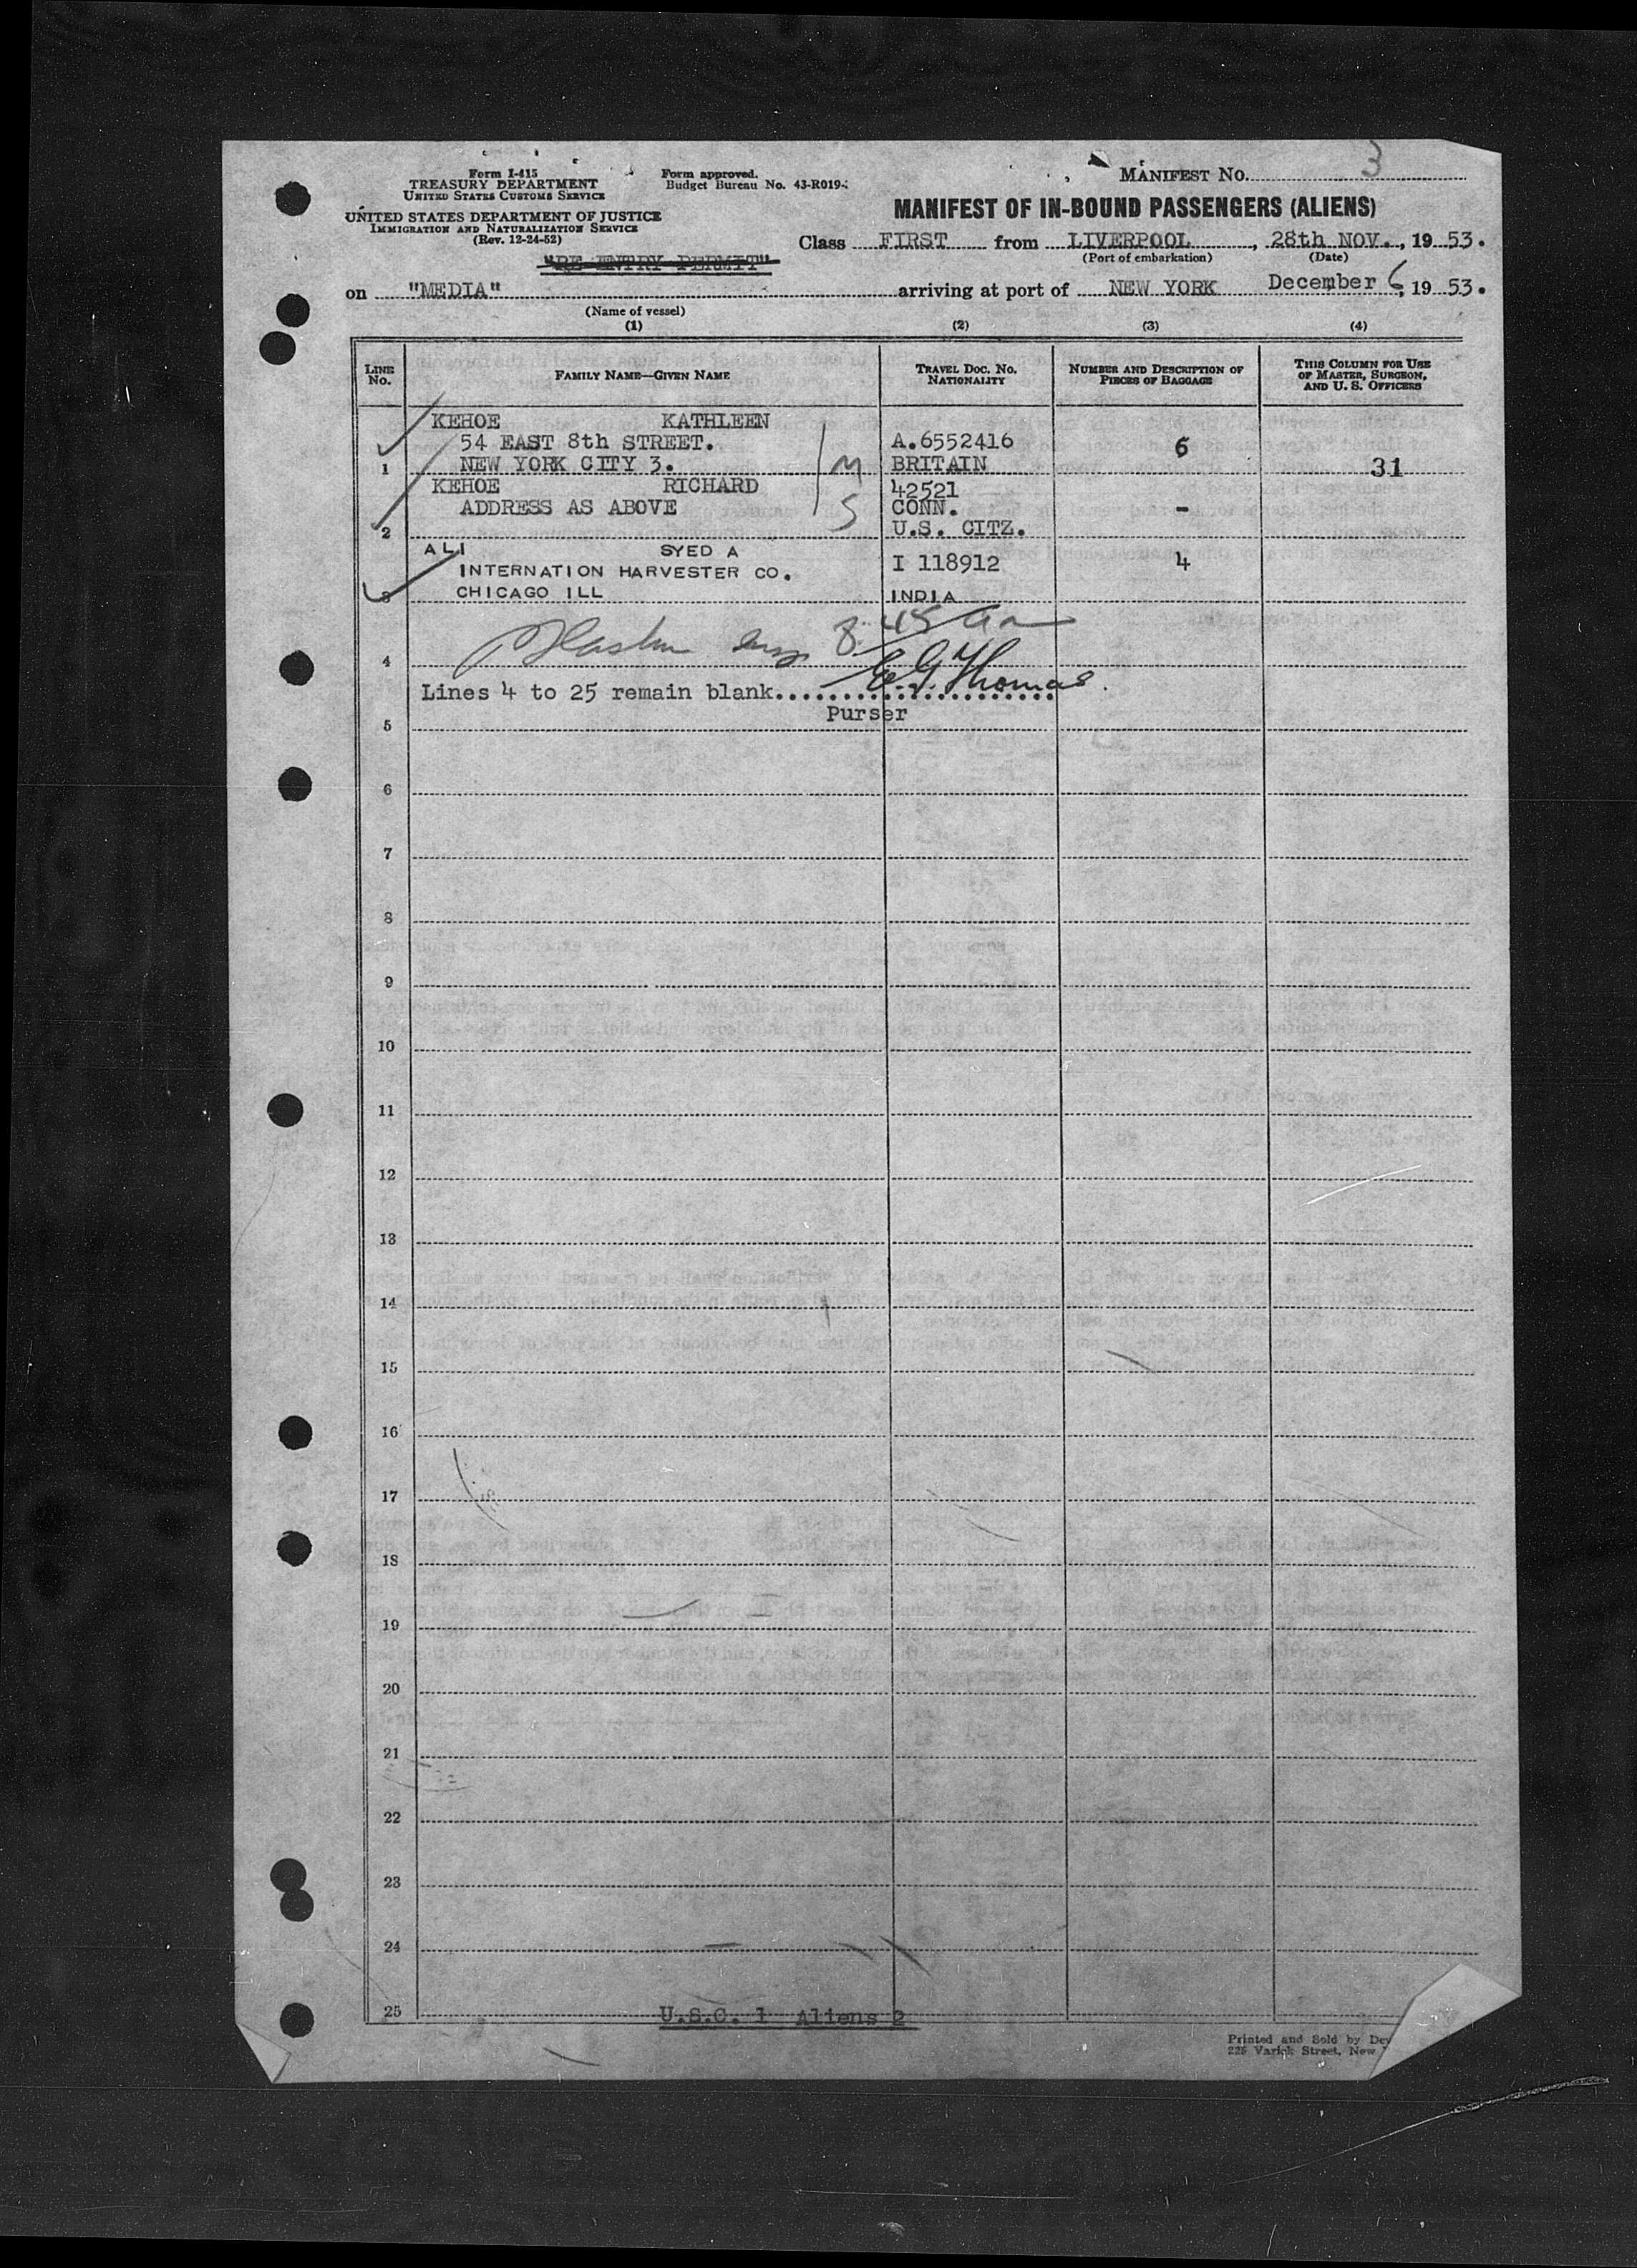 Form I-415
TREASURY DEPARTMENT
UNITED STATES CUSTOMS SERVICE
UNITED STATES DEPARTMENT OF JUSTICE
IMMIGRATION AND NATURALIZATION SERVICE
(Rev. 12-24-52)
Form approved.
Budget Bureau No. 43-R019-
MANIFEST NO. 3
MANIFEST OF IN-BOUND PASSENGERS (ALIENS)
Class FIRST from LIVERPOOL, 28th NOV., 19 53.
(Port of embarkation) (Date)
"RE ENTRY PERMIT"
on "MEDIA" arriving at port of NEW YORK December 6, 19 53.
(Name of vessel)
(1) (2) (3) (4)
LINE No. FAMILY NAME—GIVEN NAME TRAVEL DOC. NO. NATIONALITY NUMBER AND DESCRIPTION OF PIECES OF BAGGAGE THIS COLUMN FOR USE OF MASTER, SURGEON, AND U. S. OFFICERS
KEHOE KATHLEEN
54 EAST 8th STREET. A.6552416 6
1 NEW YORK CITY 3. M BRITAIN 31
KEHOE RICHARD 42521
ADDRESS AS ABOVE S CONN. -
2 U.S. CITZ.
ALI SYED A
INTERNATION HARVESTER CO. I 118912 4
3 CHICAGO ILL INDIA
8:45 am
4
Lines 4 to 25 remain blank.......... E G Thomas
Purser
5
6
7
8
9
10
11
12
13
14
15
16
17
18
19
20
21
22
23
24
25
U.S.C. 1 Aliens 2
Printed and Sold by
225 Varick Street, New